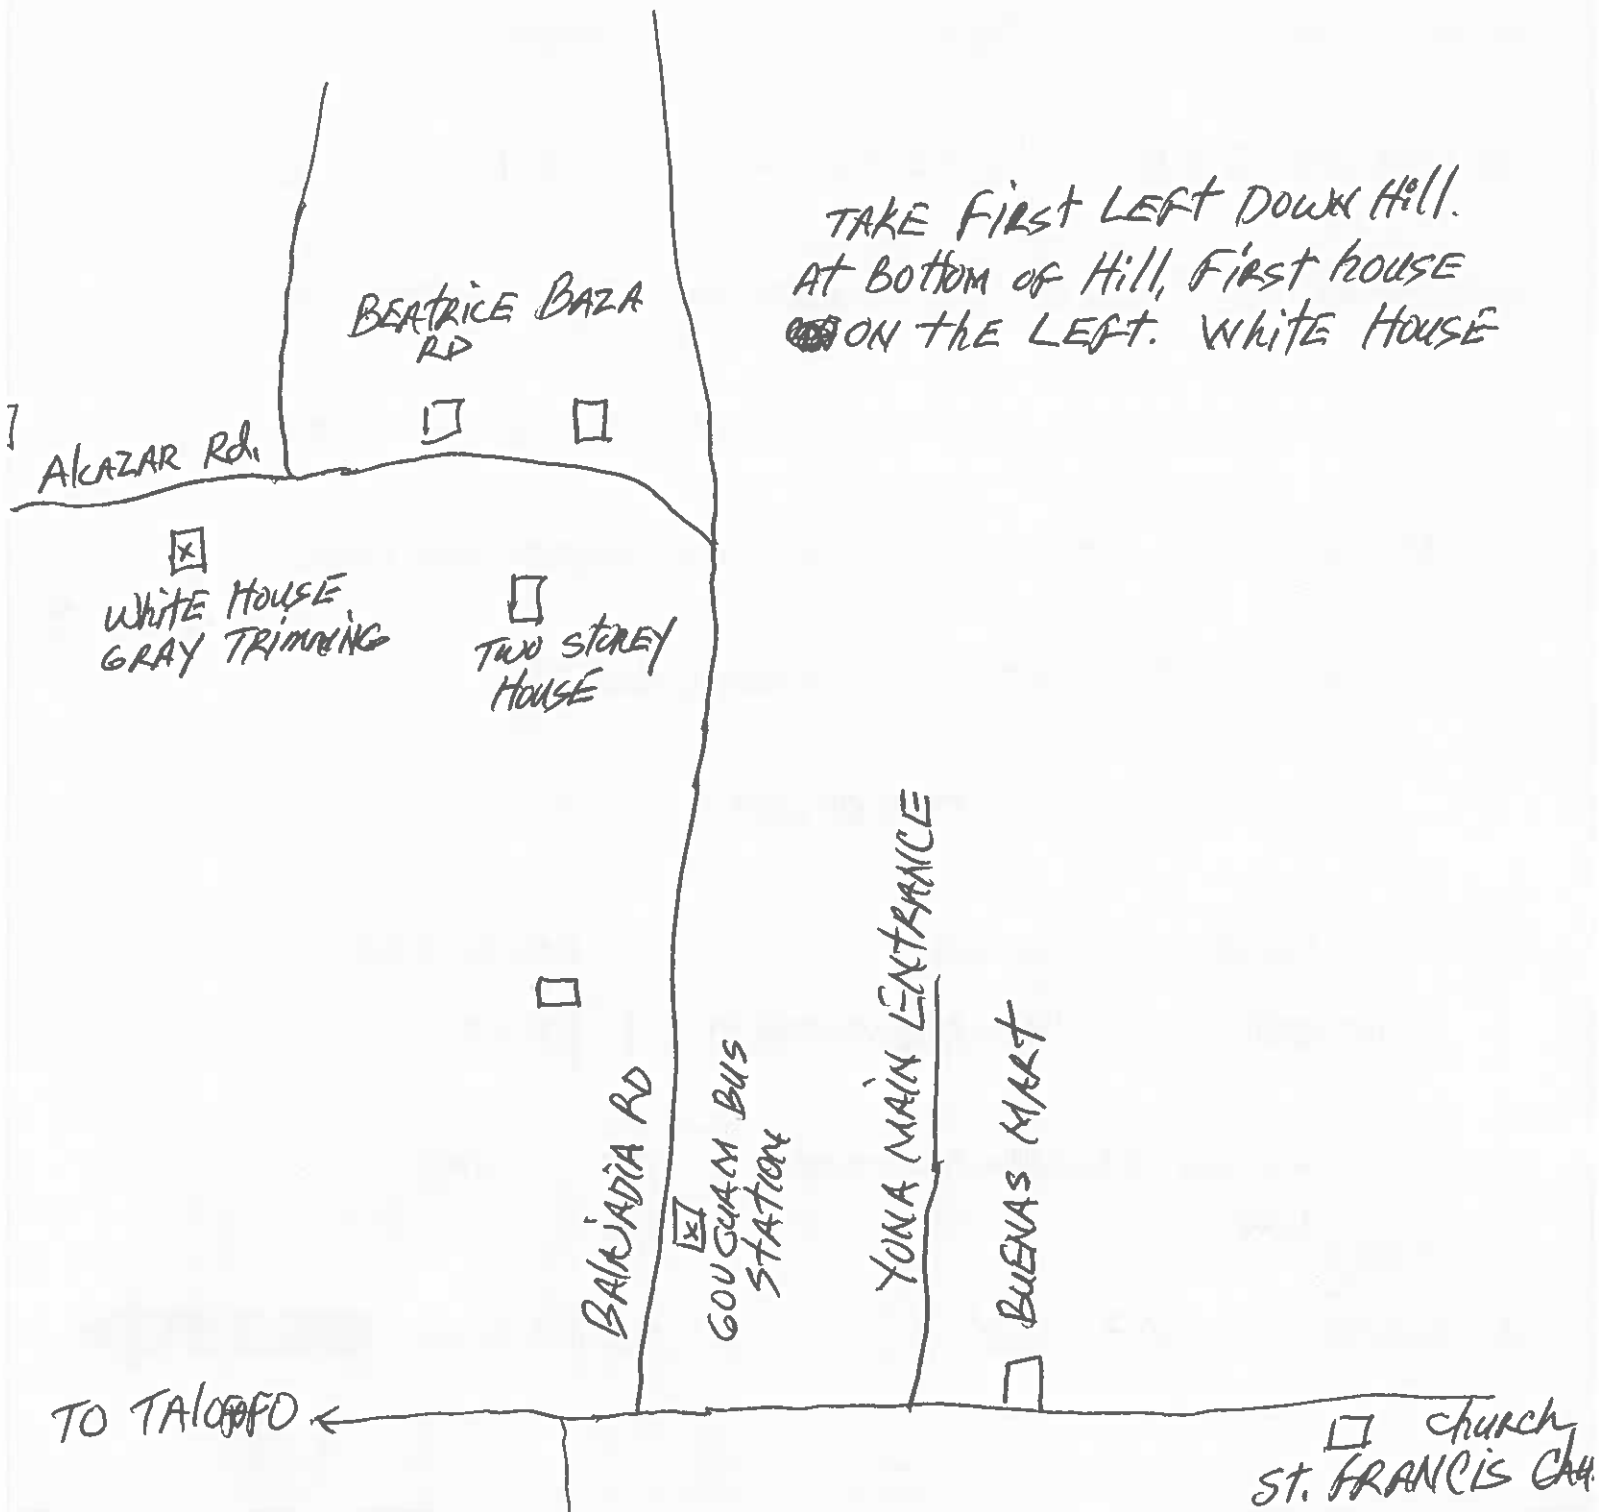 TAKE FIRST LEFT DOWN Hill.
At Bottom of Hill, First house
ON thE LEFT. White HOUSE
BEAtRicE BAZA
RD
AlcAZAR Rd.
White HOUSE
GRAY TRimmiNG
TWO StOREY
HOUSE
BAlAJADiA RD
GOUGUAM BUS
STATION
YONA MAIN ENTRANCE
BUENAS MART
TO TAlOfoFO
church
ST. FRANCiS